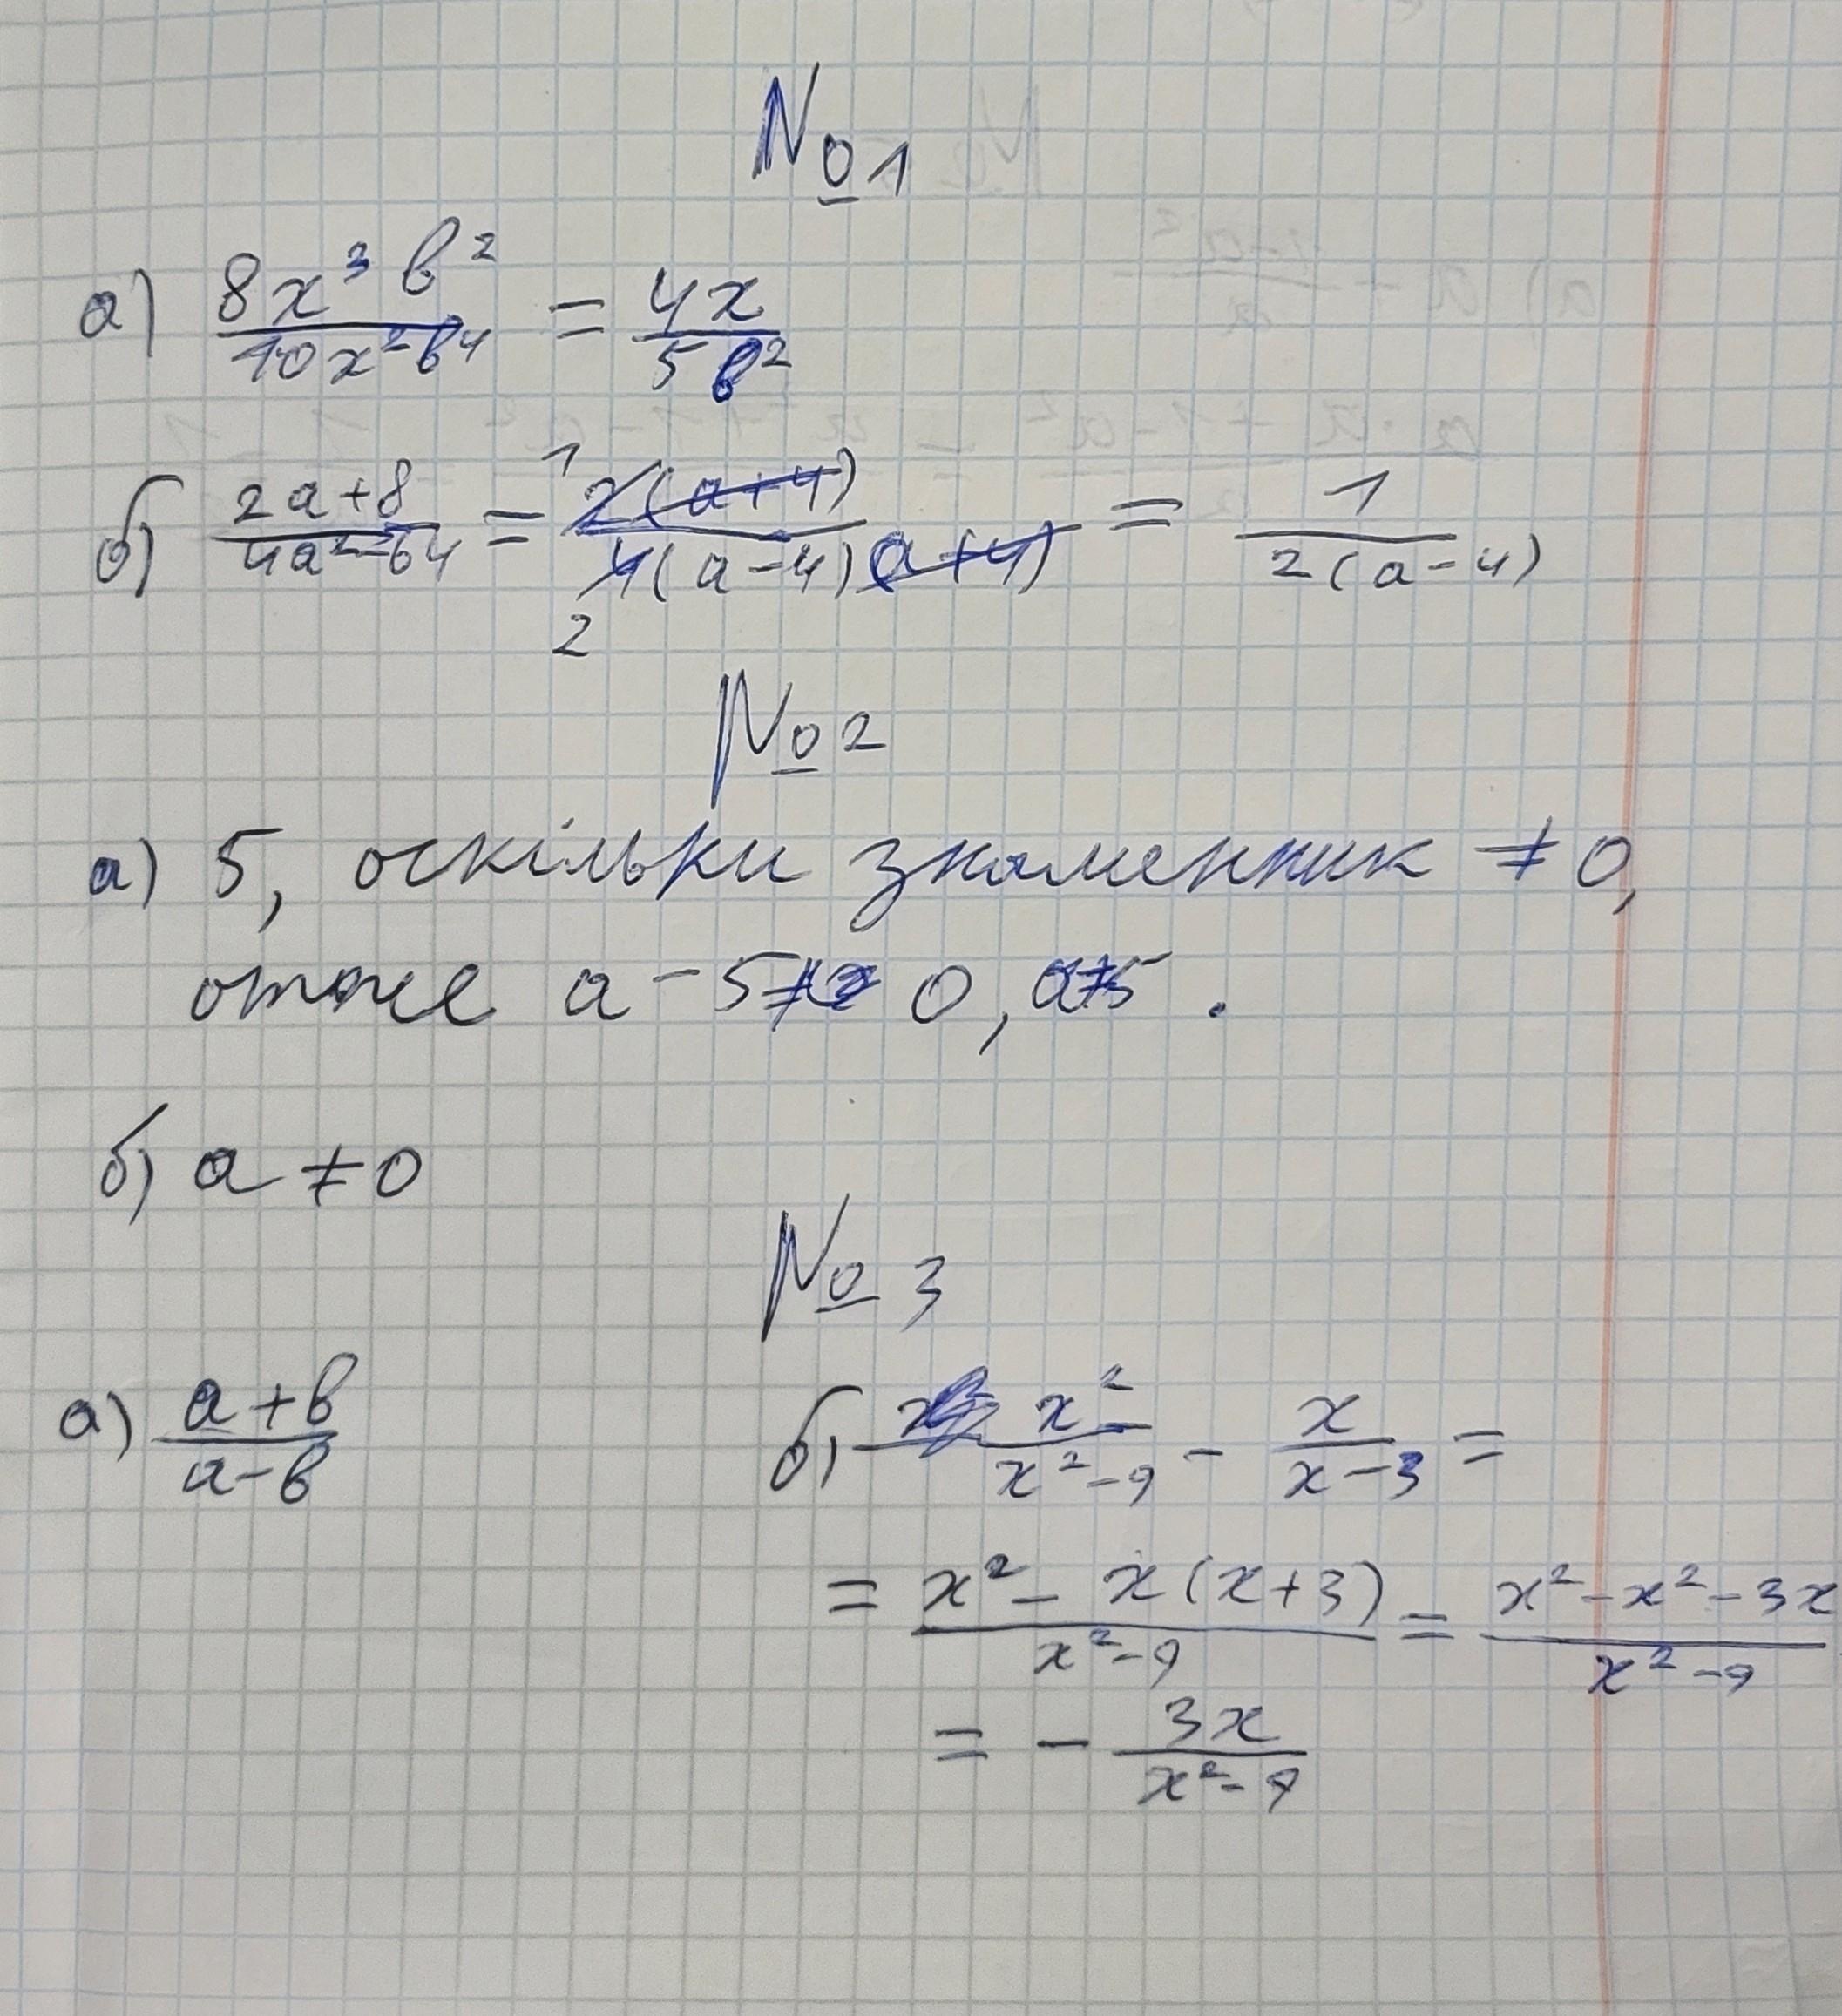 №1
а) 8x³b² / 10x²b⁴ = 4x / 5b²
б) 2a+8 / 4a²-64 = 2(a+4) / 4(a-4)(a+4) = 1 / 2(a-4)
1
2
№2
а) 5, оскільки знаменник ≠ 0,
отже a - 5 ≠ 0, a≠5.
б) a ≠ 0
№3
а) a+b / a-b
б) x² / x²-9 - x / x-3 =
= x² - x(x+3) / x²-9 = x²-x²-3x / x²-9
= - 3x / x²-9